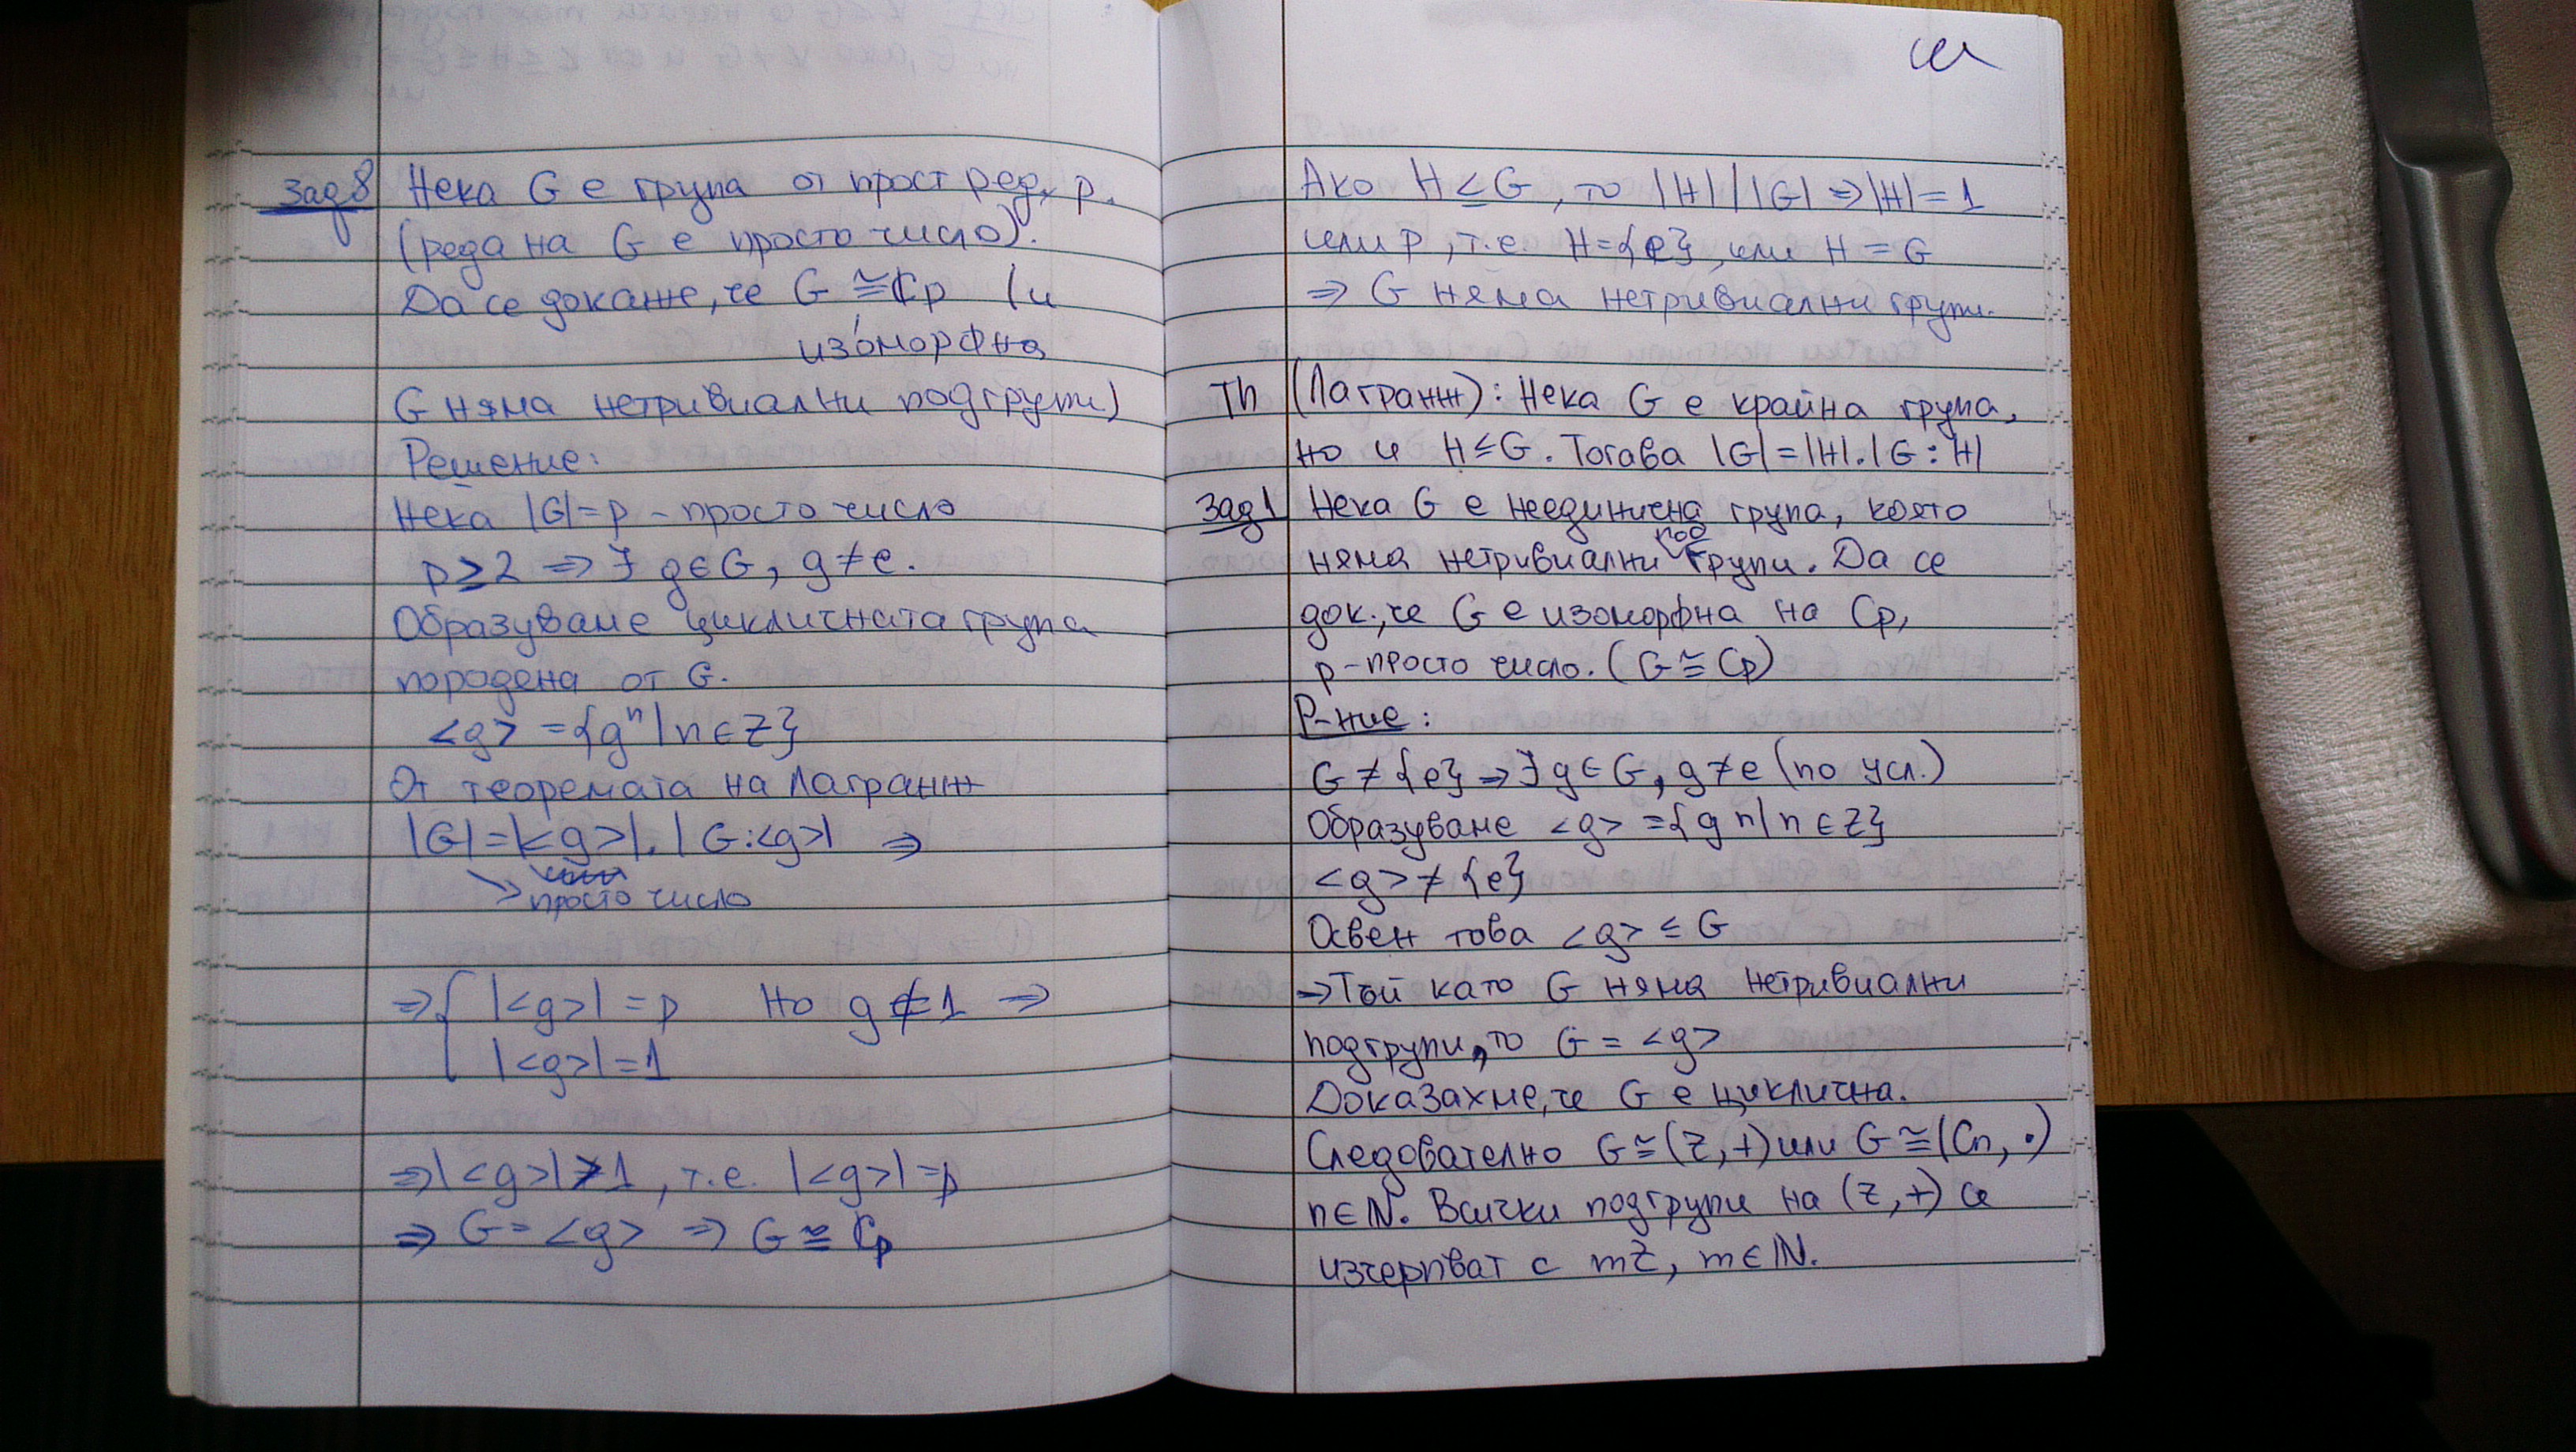 Зад 8 Нека G е група от прост ред, p.
(реда на G е просто число).
Да се докаже, че G ≅ Cp (и
изоморфна
G няма нетривиални подгрупи)
Решение:
Нека |G|=p - просто число
p≥2 => ∃ g∈G, g≠e.
Образуваме цикличната група
породена от G.
<g> ={gⁿ|n∈Z}
От теоремата на Лагранж
|G|=|<g>|.|G:<g>| =>
просто число
=>{ |<g>|=p Но g≠1 =>
|<g>|=1
=>|<g>|>1, т.е. |<g>|=p
=> G=<g> => G≅Cp
Ако H≤G, то |H|/|G| =>|H|=1
или p, т.е. H={e}, или H=G
=> G няма нетривиални групи.
Th (Лагранж): Нека G е крайна група,
но и H≤G. Тогава |G|=|H|.|G:H|
Зад 1 Нека G е неединична група, която
няма нетривиални подгрупи. Да се
док., че G е изоморфна на Cp,
p-просто число. (G≅Cp)
Р-ние:
G≠{e} => ∃g∈G, g≠e (по усл.)
Образуваме <g> ={gn|n∈Z}
<g>≠{e}
Освен това <g>≤G
=>Тъй като G няма нетривиални
подгрупи, то G=<g>
Доказахме, че G е циклична.
Следователно G≅(Z,+) или G≅(Cn,.)
n∈N. Всички подгрупи на (Z,+) се
изчерпват с mZ, m∈N.